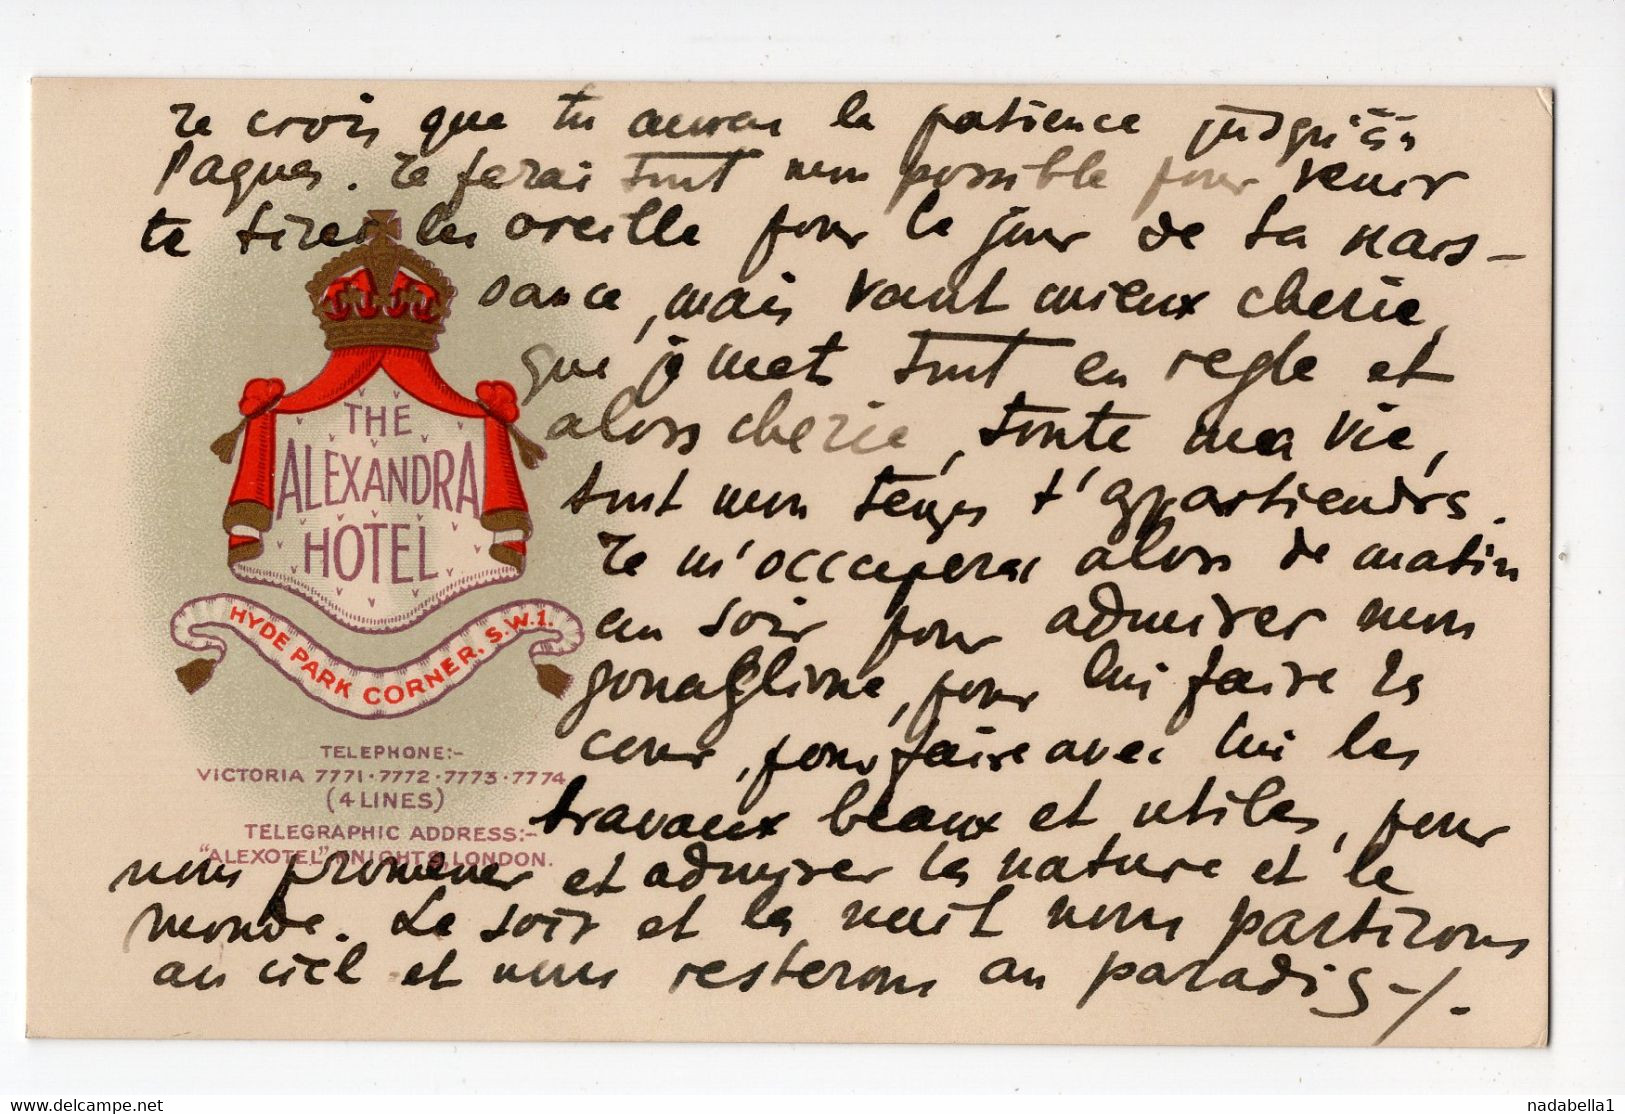 Je crois que tu auras la patience jusqu'à
Paques. Je ferai tout mon possible pour venir
te tirer les oreille pour le jour de ta nais-
sance, mais vaut mieux cherie,
que je mets tout en regle et
alors cherie, toute ma vie,
tout mon temps t'appartiendra.
Je m'occuperai alors de matin
au soir pour admirer mon
pour lui faire la
cour, pour faire avec lui les
travaux beaux et utiles, pour
nous promener et admirer la nature et le
monde. Le soir et la nuit nous partirons
au ciel et nous resterons au paradis -/-
THE
ALEXANDRA
HOTEL
HYDE PARK CORNER, S.W.1.
TELEPHONE:-
VICTORIA 7771·7772·7773·7774
(4 LINES)
TELEGRAPHIC ADDRESS:-
"ALEXOTEL" KNIGHTS, LONDON.
delcampe.net
nadabella1